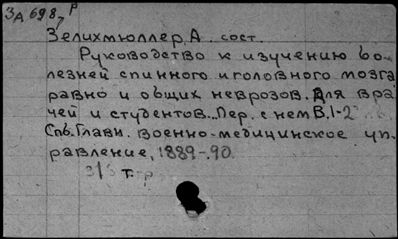 3А 698, Р
Зелихмюллер, А. сост.
Руководство к изучению бо-
лезней спинного и головного мозга
равно и общих неврозов. Для вра-
чей и студентов. Пер. с нем В. 1-2
Спб. Главн. военно-медицинское уп-
равление, 1889-90.
т.